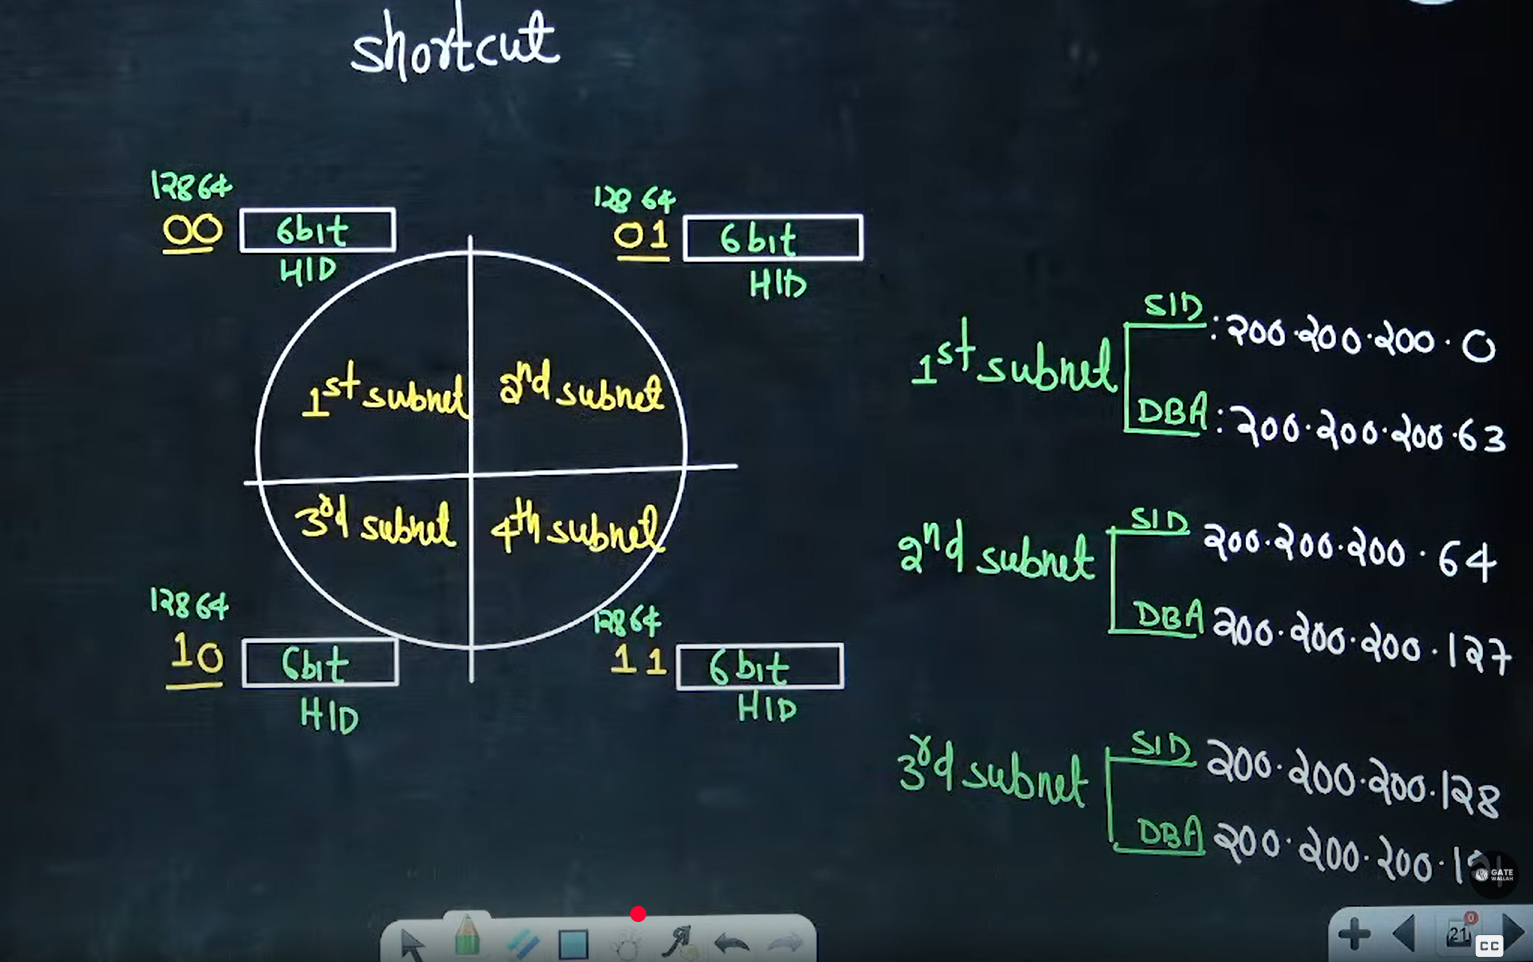 shortcut
128 64
00 6bit
HID
128 64
01 6bit
HID
1st subnet
2nd subnet
3rd subnet
4th subnet
128 64
10 6bit
HID
128 64
11 6bit
HID
1st subnet
SID : 200.200.200.0
DBA : 200.200.200.63
2nd subnet
SID 200.200.200.64
DBA 200.200.200.127
3rd subnet
SID 200.200.200.128
DBA 200.200.200.1
GATE
WALLAH
0
21
CC